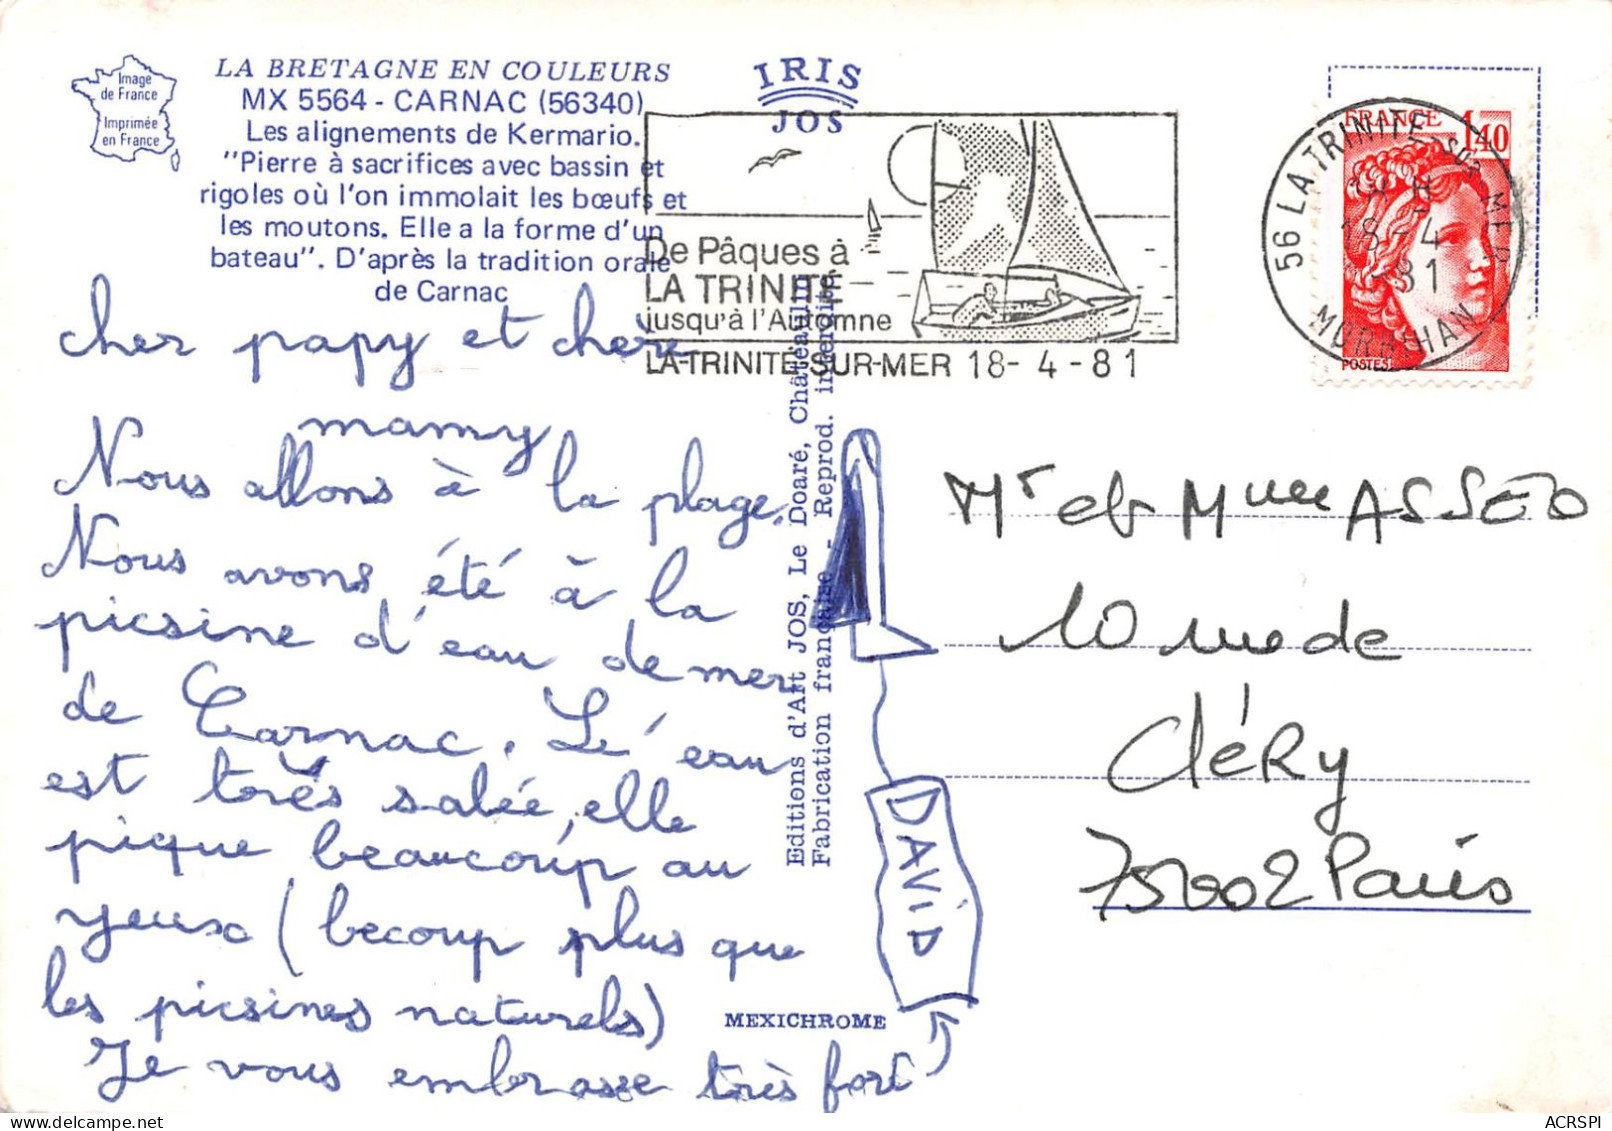 Image
de France
Imprimée
en France
LA BRETAGNE EN COULEURS
MX 5564 - CARNAC (56340)
Les alignements de Kermario.
"Pierre à sacrifices avec bassin et
rigoles où l'on immolait les bœufs et
les moutons. Elle a la forme d'un
bateau". D'après la tradition orale
de Carnac
IRIS
JOS
De Pâques à
LA TRINITÉ
jusqu'à l'Automne
LA-TRINITE-SUR-MER 18-4-81
FRANCE 1,40
POSTES
56 LA TRINITE SUR-MER
18-4
81
MORBIHAN
cher papy et chère
mamy
Nous allons à la plage.
Nous avons été à la
picsine d'eau de mer
de Carnac. Le éau
est torès salée, elle
pique beaucoup au
yeux (becoup plus que
les picsines naturels)
Je vous embrasse torès fort
DAViD
Editions d'Art JOS, Le Doaré, Châteaulin
Fabrication française - Reprod. interdite
MEXICHROME
Mr et Mme ASSEO
10 rue de
CléRy
75002 Paris
ACRSPI